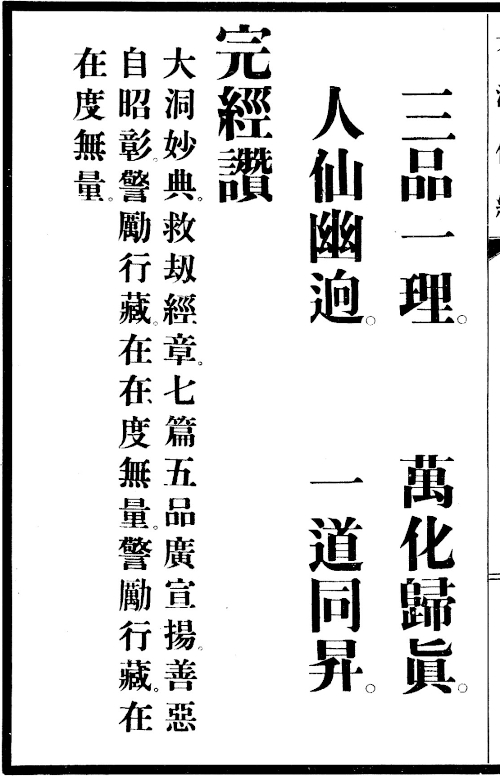 三品一理。萬化歸眞。
人仙幽逈。一道同昇。
完經讚
大洞妙典。救刼經章。七篇五品廣宣揚。善惡
自昭彰。警勵行藏。在在度無量。警勵行藏。在
在度無量。